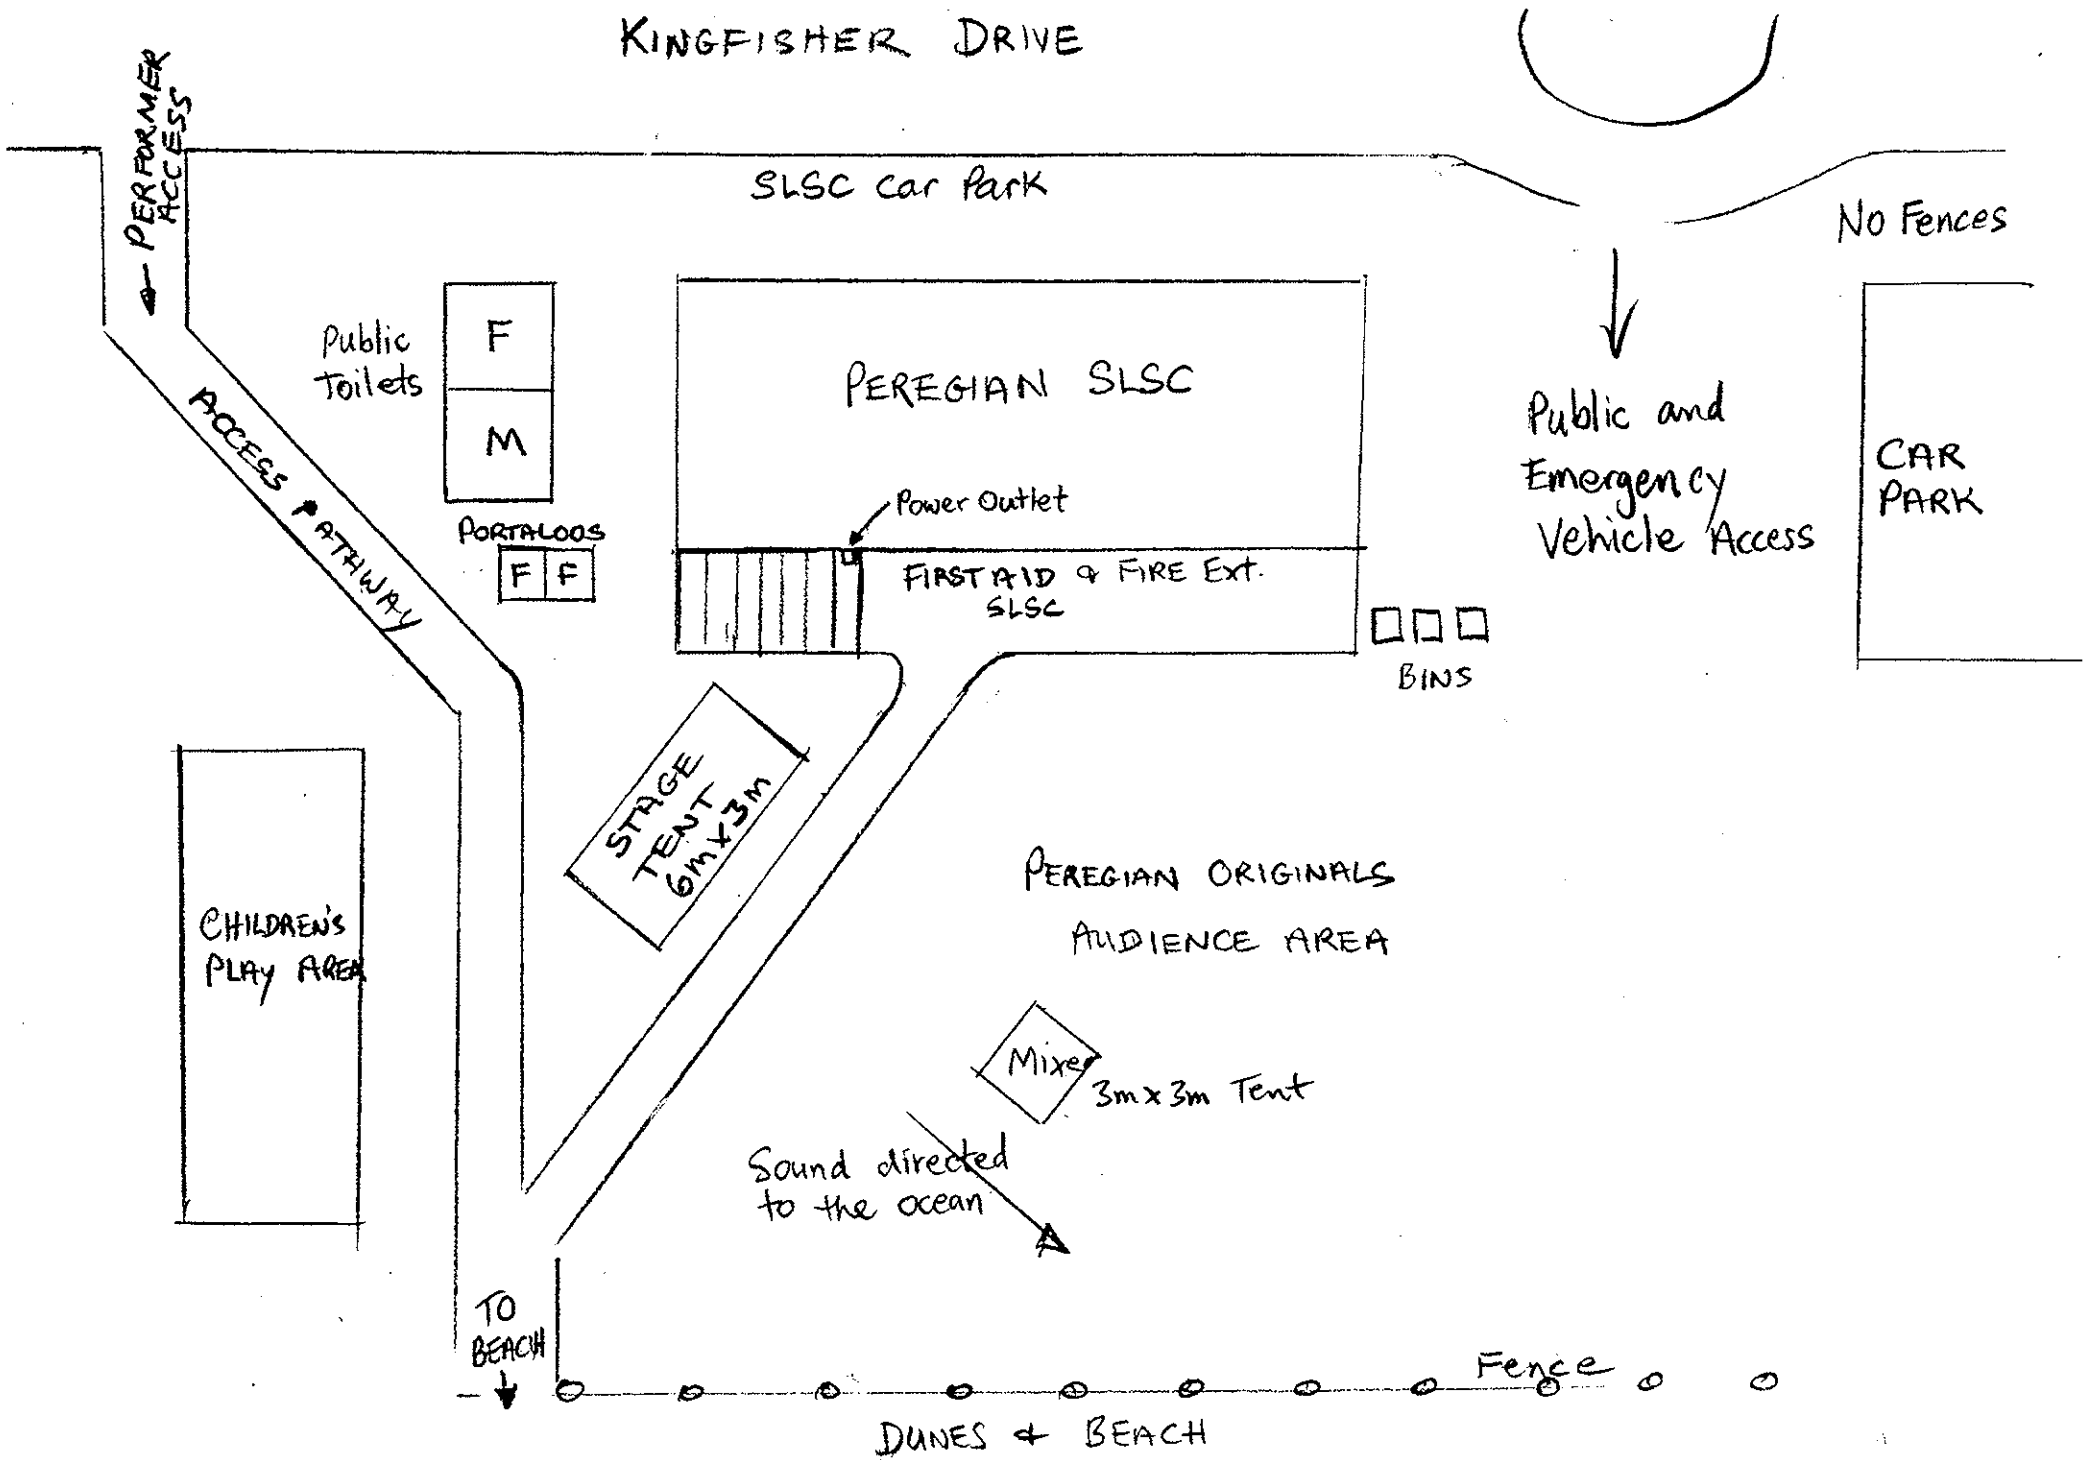 KINGFISHER DRIVE
← PERFORMER
ACCESS
SLSC Car Park
NO Fences
Public
Toilets
F
M
PEREGIAN SLSC
Public and
Emergency
Vehicle Access
CAR
PARK
ACCESS PATHWAY
PORTALOOS
F F
Power Outlet
FIRST AID & FIRE Ext.
SLSC
BINS
STAGE
TENT
6m x 3m
PEREGIAN ORIGINALS
AUDIENCE AREA
CHILDREN'S
PLAY AREA
Mixer
3m x 3m Tent
Sound directed
to the ocean
TO
BEACH
Fence
DUNES & BEACH